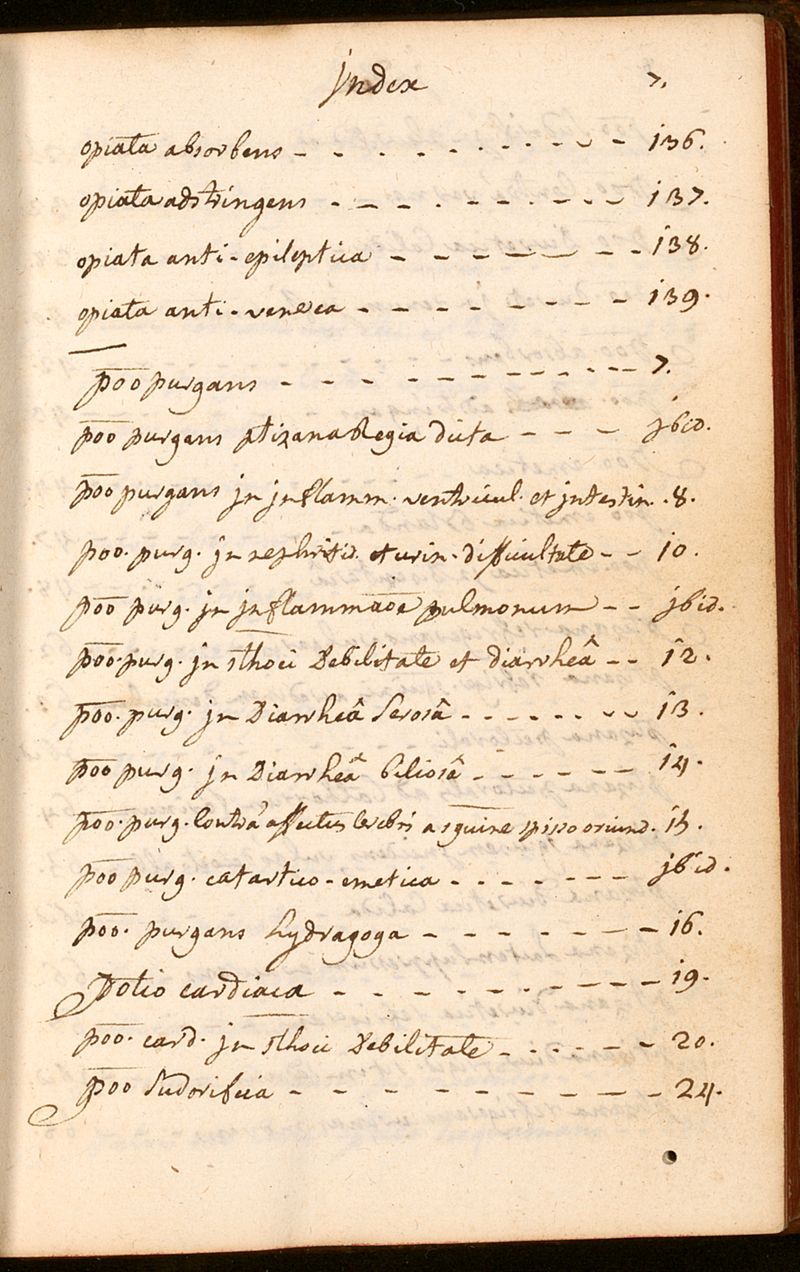 Jndex 7.
opiata absorbens - - - - - - - - - - 136.
opiata adstringens - - - - - - - - - - 137.
opiata anti-epileptica - - - - - - - - 138.
opiata anti-venerea - - - - - - - - - 139.
p̄oo purgans - - - - - - - - - - - 7.
p̄oo purgans ptizana Regia dicta - - - - jbid.
p̄oo purgans jn jnflamm. ventricul. et jntestin. 8.
poo. purg. jn nephritid. et urin. difficultate - - 10.
p̄oo purg. jn jnflammaōe pulmonum - - jbid.
p̄oo. purg. jn sthoci Debilitate et diarrheâ - - 12.
p̄oo. purg. jn Diarrheâ Serosâ - - - - - - - 13.
p̄oo purg. jn Diarrheâ biliosâ - - - - - - 14.
p̄oo. purg. Contrà affectus Cerebri a sguine spisso oriund. 15.
p̄oo purg. catartico-emetica - - - - - - - jbid.
p̄oo. purgans hydragoga - - - - - - - 16.
potio cardiaca - - - - - - - - - - 19.
p̄oo. card. jn sthoci Debilitate - - - - - - 20.
p̄oo Sudorifica - - - - - - - - - - 24.